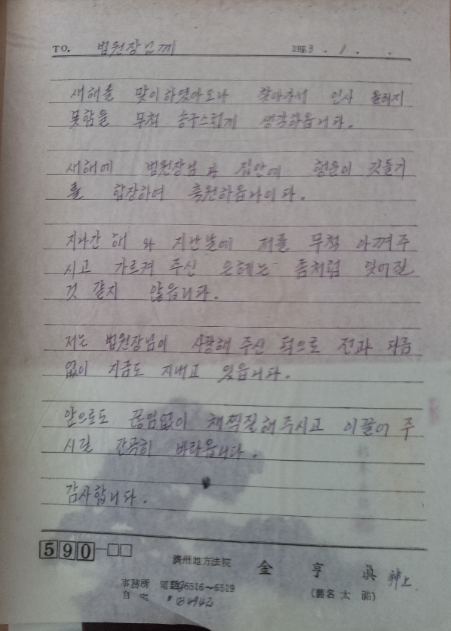 TO. 법원장님께 1983. 1. .
새해를 맞이하였아오나 찾아가서 인사 올리지
못함을 무척 송구스럽게 생각하옵니다.
새해에 법원장님과 집안에 행운이 깃들기
를 합장하여 축원하옵나이다.
지나간 해와 지난날에 저를 무척 아껴주
시고 가르켜 주신 은혜는 좀처럼 잊어질
것 같지 않읍니다.
저는 법원장님이 사랑해 주신 덕으로 전과 다름
없이 지금도 지내고 있읍니다.
앞으로도 끊임없이 채찍질해주시고 이끌어 주
시길 간곡히 바라옵니다.
감사합니다.
590-□□
濟州地方法院 金亨眞 拜上
事務所 電話 6516~6519
自宅